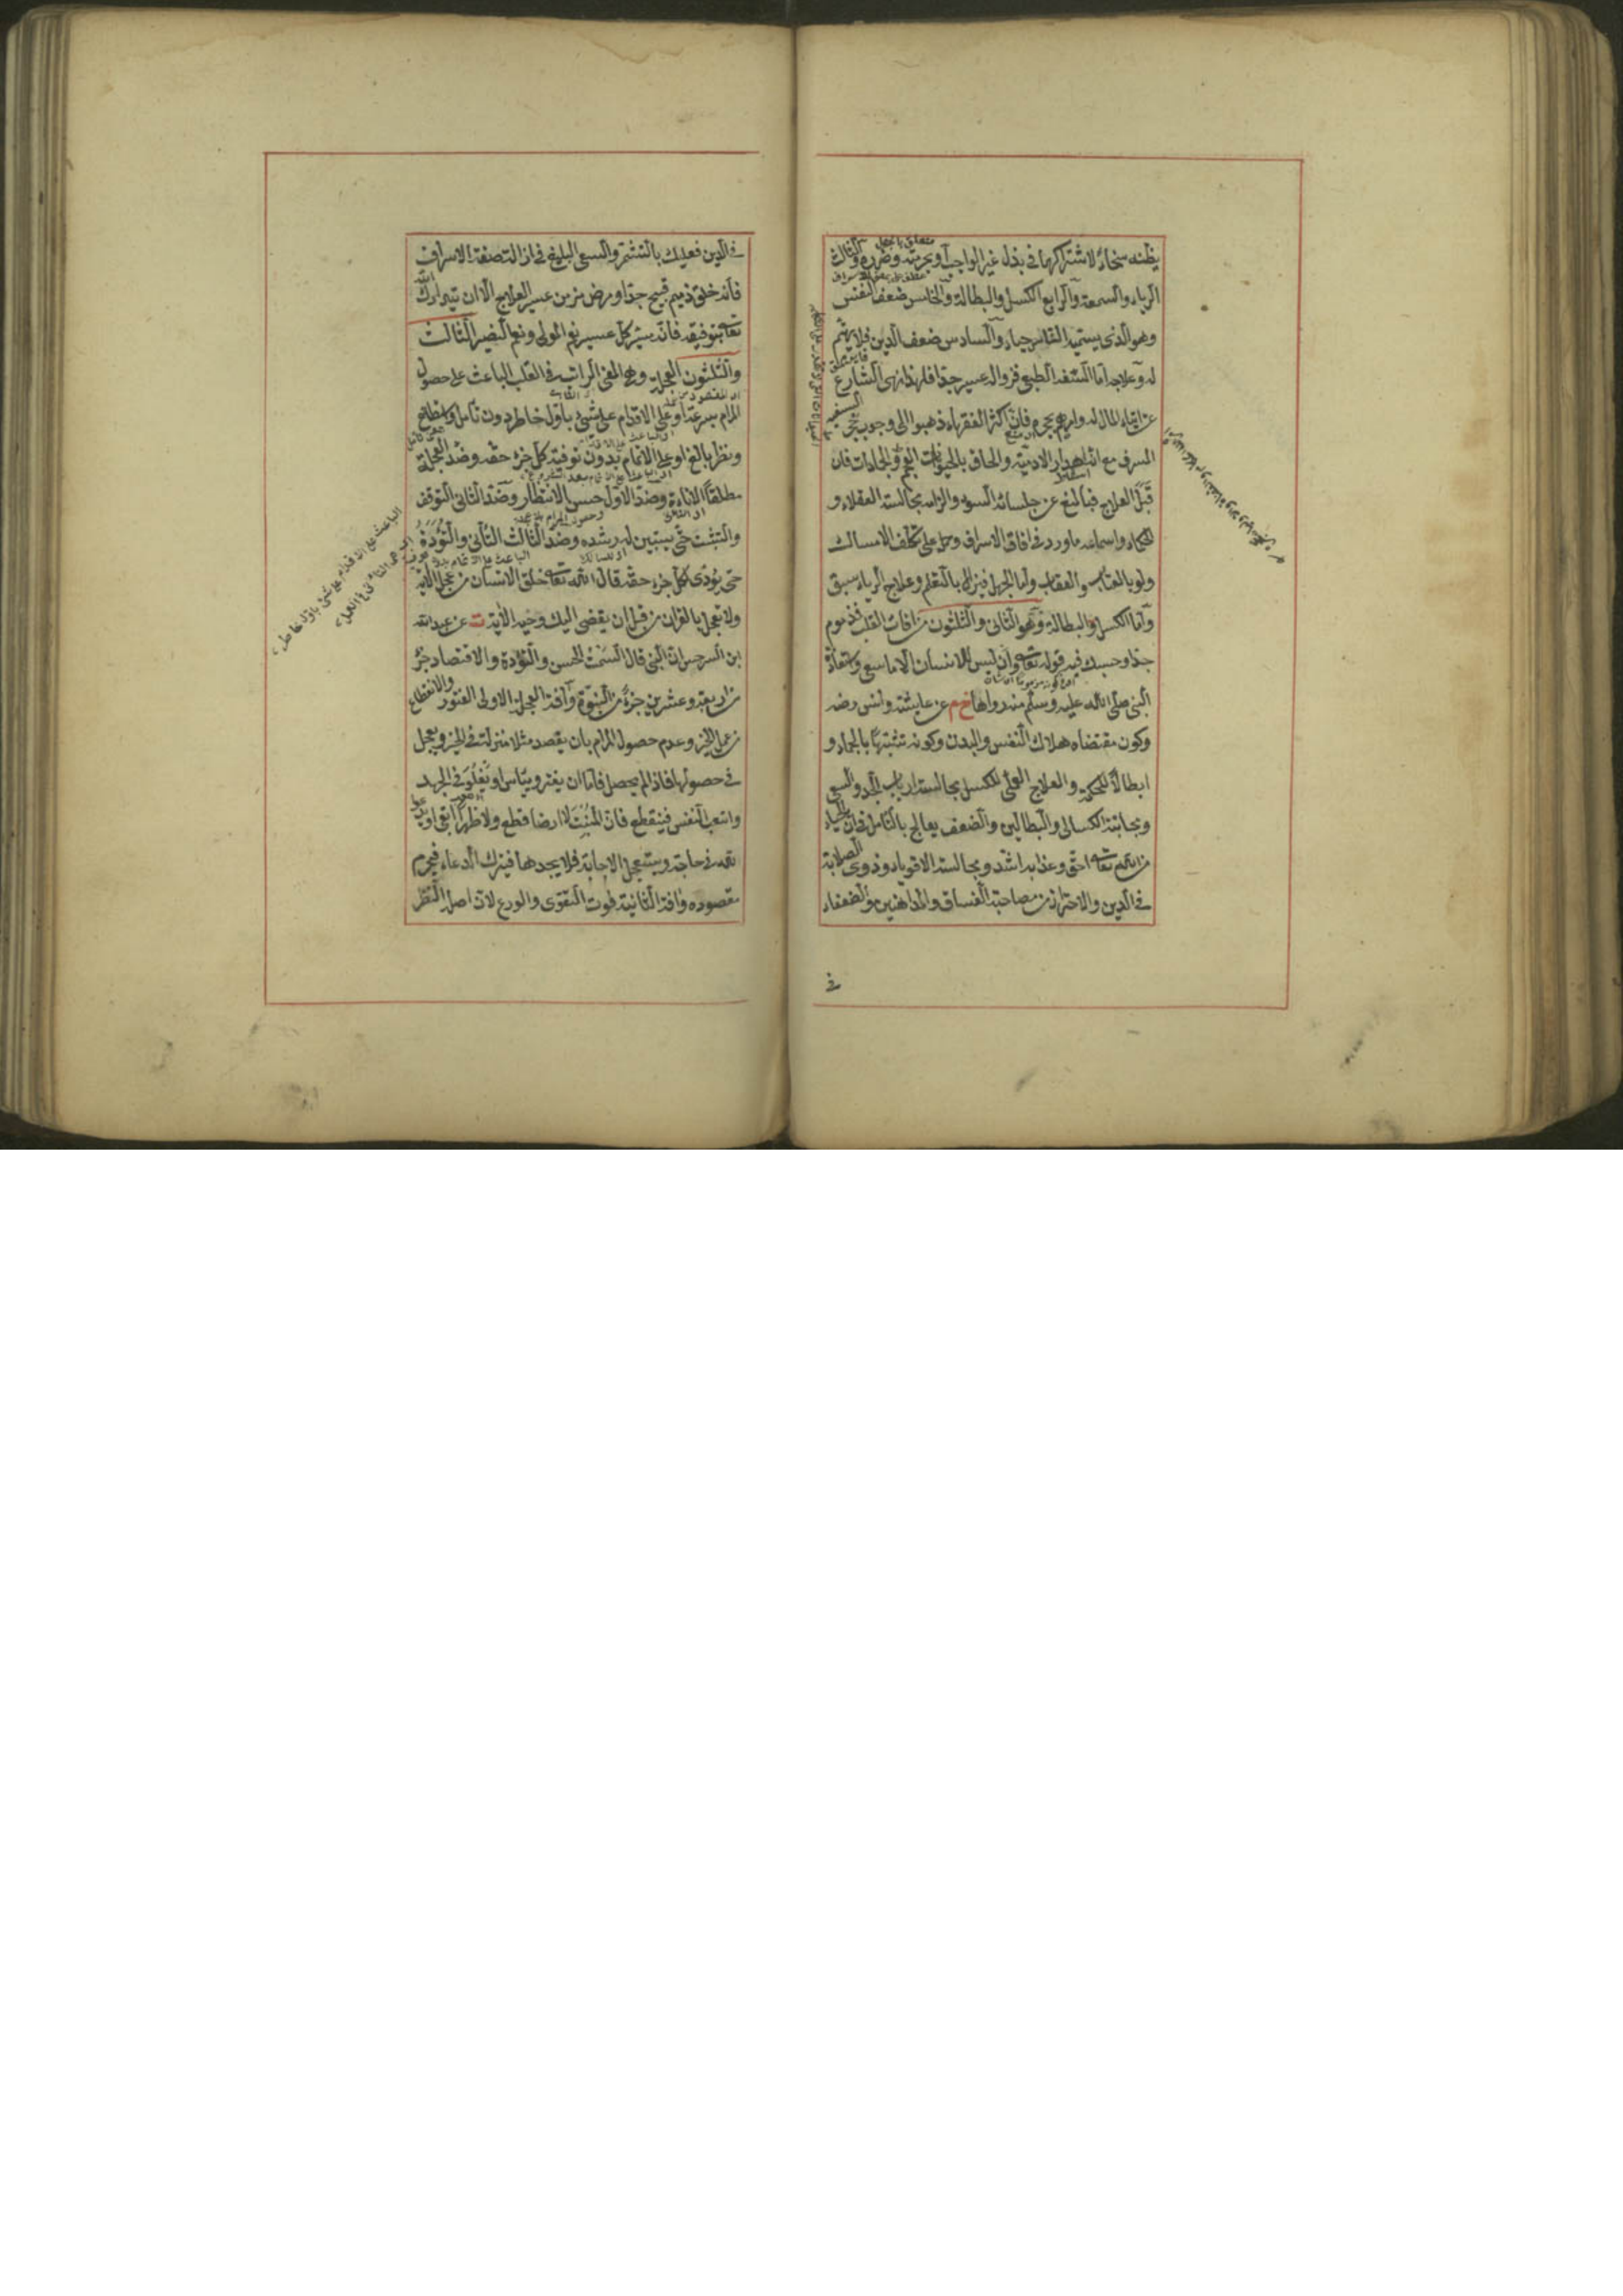 يظنه سخاء لاشتراكهما في بذل غير الواجب أو بحرمته وضرره والثالث
الرياء والسمعة والرابع الكسل والبطالة والخامس ضعف النفس
وهو الذي يسميه الناس حياء والسادس ضعف الدين فلا يهتم
له وعلاجه أما السفه الطبيعي فزواله عسير جدا فلهذا نهى الشارع
عن ايتاء المال له وامر بحجره فان اكثر الفقهاء ذهبوا الى وجوب حجر السفيه
المسرف مع انه اهدار الادمية والحاق بالحيوانات العجم والجمادات فان
قبل العلاج فبالمنع عن جلساء السوء والزامه مجالسة العقلاء و
الحكماء واسماعه ما ورد في افات الاسراف وحمله على تكلف الامساك
ولو بالعتاب والعقاب واما الجهل فيزال بالتعلم وعلاج الرياء سبق
وأما الكسل والبطالة وهو الثاني والثلثون من افات القلب فمذموم
جدا وحسبك فيه قوله تعالى وان ليس للانسان الا ما سعى واستعاذة
النبي صلى الله عليه وسلم منه رواها خ م عن عايشة وانس رضه
وكون مقتضاه هلاك النفس والبدن وكونه تشبها بالجماد و
ابطالا للحكمة والعلاج العملي للكسل مجالسة ارباب الجد والسعي
ومجانبة الكسالى والبطالين والضعف يعالج بالتأمل في ان الحياء
من الله تعالى احق وعذابه اشد ومجالسة الاقوياء وذوي الصلابة
في الدين والاحتراز من مصاحبة الفساق والمداهنين والضعفاء
في
في الدين فعليك بالتشمر والسعي البليغ في ازالة صفة الاسراف
فانه خلق ذميم قبيح جدا ومرض مزمن عسير العلاج الا ان يتدارك الله
تعالى بتوفيقه فانه ميسر كل عسير نعم المولى ونعم النصير الثالث
والثلثون العجلة وهي المعنى الراتب في القلب الباعث على حصول
المرام بسرعة او على الاقدام على شيء باول خاطر دون تأمل واستطلاع
ونظر بالغ او على الاتمام بدون توفية كل جزء حقه وضد العجلة
مطلقا الاناءة وضد الاول حسن الانتظار وضد الثاني التوقف
والتثبت حتى يستبين له رشده وضد الثالث التأني والتؤدة
حتى يؤدى لكل جزء حقه قال الله تعالى خلق الانسان من عجل الآية
ولا تعجل بالقران من قبل ان يقضى اليك وحيه الآية ت عن عبد الله
ابن السرجس ان النبي قال السمت الحسن والتؤدة والاقتصاد جزء
من اربعة وعشرين جزءا من النبوة وآفة العجلة الاولى الفتور والانقطاع
من عمل الخير وعدم حصول المرام بان يقصد مثلا منزلة في الخير ويعجل
في حصولها فاذا لم يحصل فاما ان يفتر وييأس او يغلو في الجهد
واتعب النفس فينقطع فان المنبت لا ارضا قطع ولا ظهرا ابقى او يدعوا
الله في حاجة ويستعجل الاجابة فلا يجدها فيترك الدعاء فيحرم
مقصوده وافة الثانية فوت التقوى والورع لان اصله النظر
الباعث على الاقدام على شيء باول خاطر